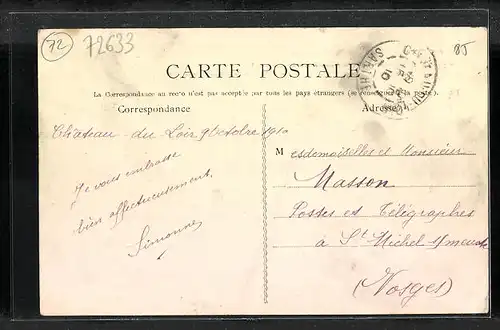 72
72633
85
CARTE POSTALE
La Correspondance au recto n'est pas acceptée par tous les pays étrangers (se renseigner à la poste).
Correspondance
Adresse
Château-du-Loir 9 Octobre 1910
Je vous embrasse
bien affectueusement,
Simonne
Mesdemoiselles et Monsieur
Masson
Postes et Télégraphes
à St Michel s/meurthe
(Vosges)